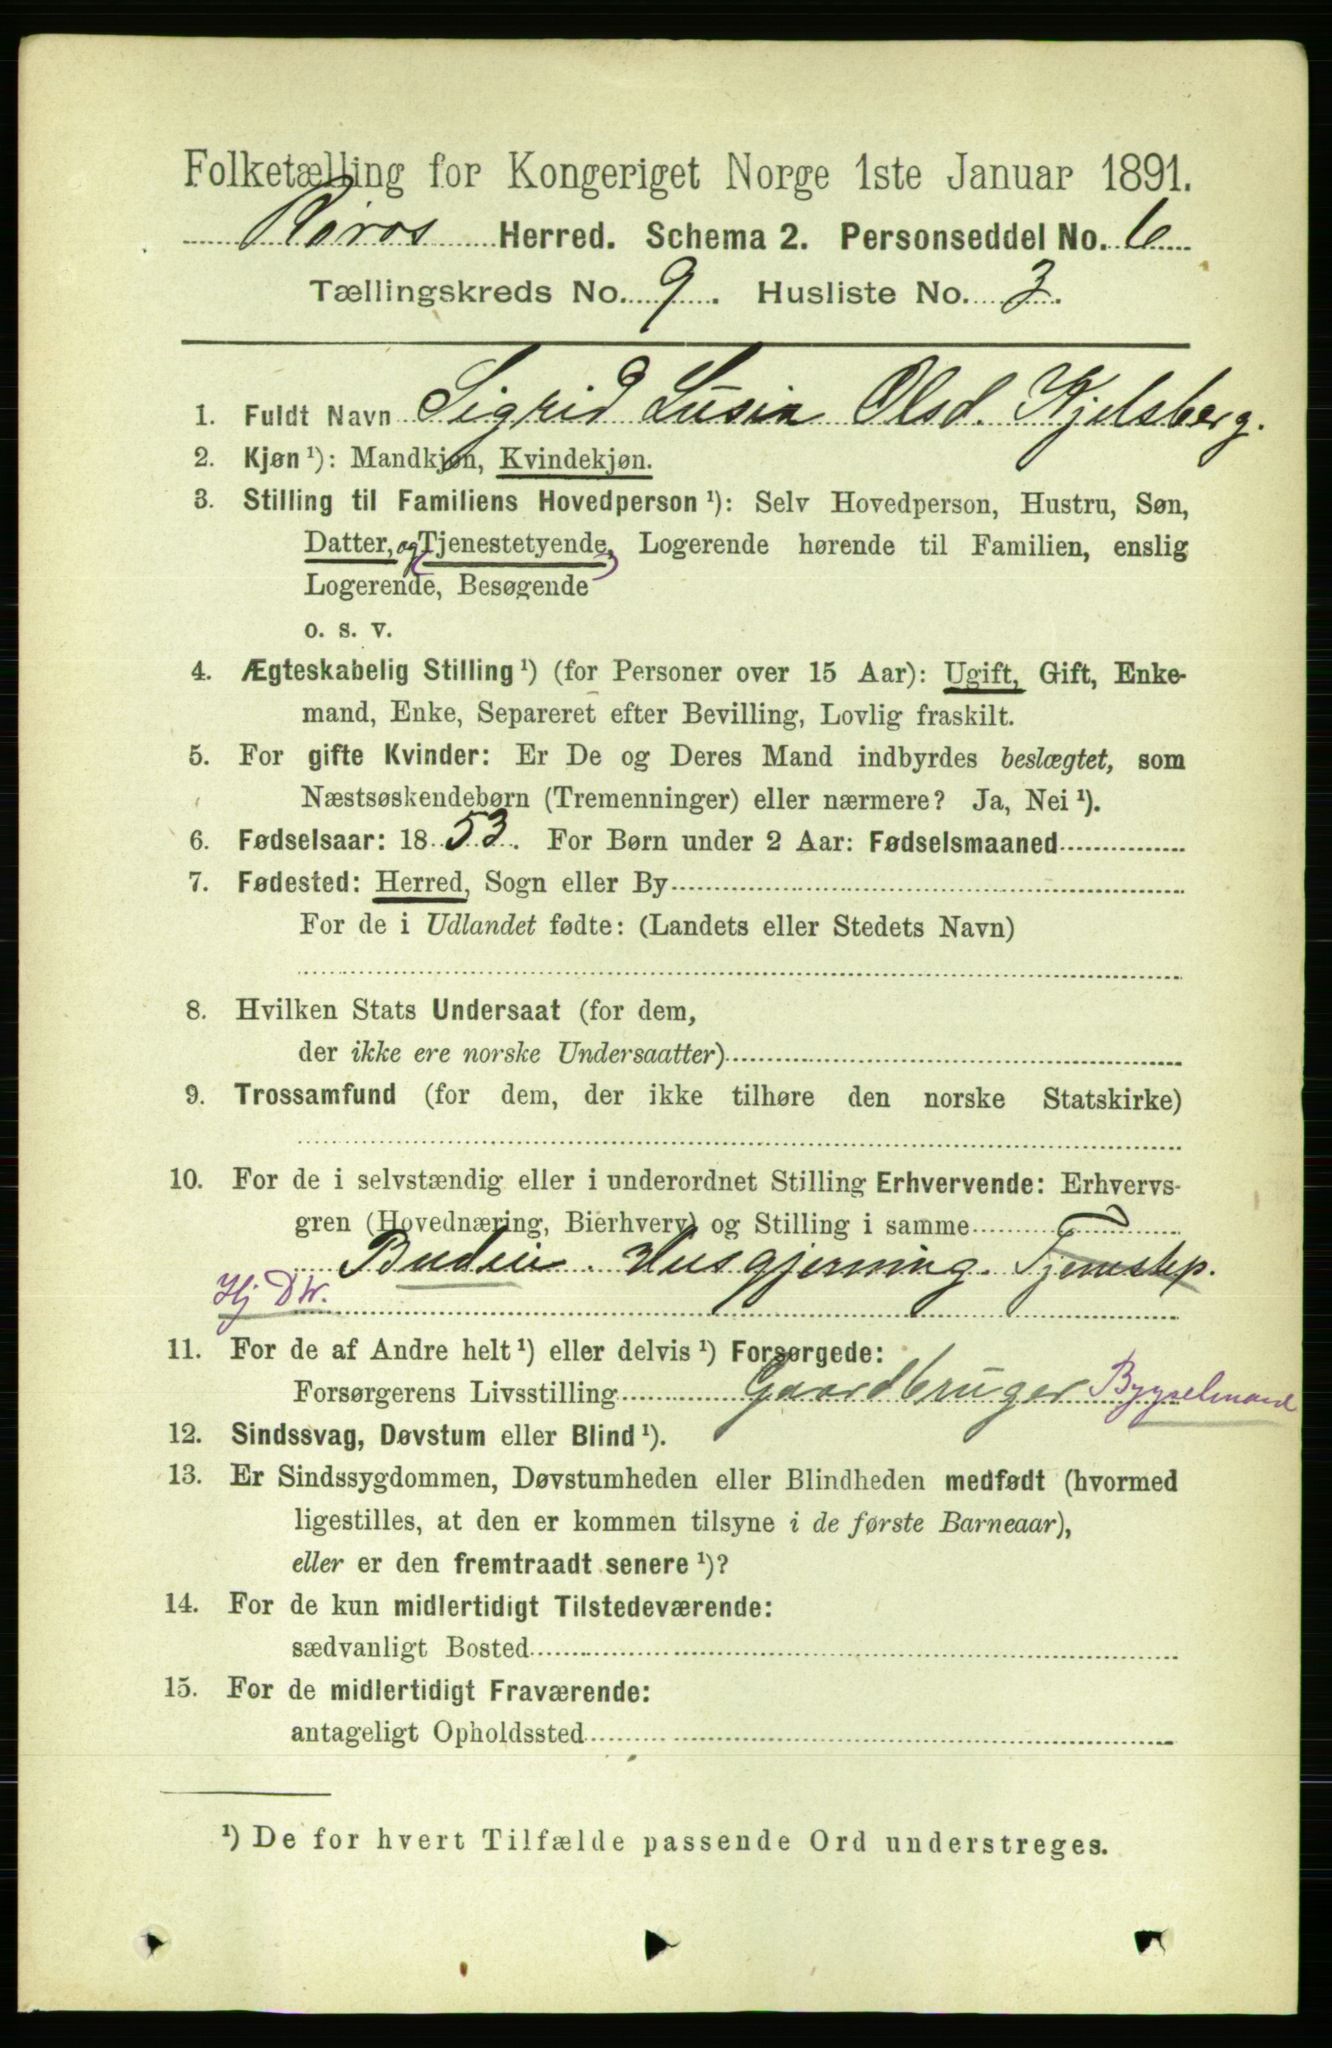 Folketælling for Kongeriget Norge 1ste Januar 1891.
Røros Herred. Schema 2. Personseddel No. 6
Tællingskreds No. 9. Husliste No. 3.
1. Fuldt Navn Sigrid Lusia Olsd. Kjelsberg.
2. Kjøn ¹): Mandkjøn, Kvindekjøn.
3. Stilling til Familiens Hovedperson ¹): Selv Hovedperson, Hustru, Søn,
Datter, og Tjenestetyende, Logerende hørende til Familien, enslig
Logerende, Besøgende
o. s. v.
4. Ægteskabelig Stilling ¹) (for Personer over 15 Aar): Ugift, Gift, Enke-
mand, Enke, Separeret efter Bevilling, Lovlig fraskilt.
5. For gifte Kvinder: Er De og Deres Mand indbyrdes beslægtet, som
Næstsøskendebørn (Tremenninger) eller nærmere? Ja, Nei ¹).
6. Fødselsaar: 1853. For Børn under 2 Aar: Fødselsmaaned
7. Fødested: Herred, Sogn eller By
For de i Udlandet fødte: (Landets eller Stedets Navn)
8. Hvilken Stats Undersaat (for dem,
der ikke ere norske Undersaatter)
9. Trossamfund (for dem, der ikke tilhøre den norske Statskirke)
10. For de i selvstændig eller i underordnet Stilling Erhvervende: Erhvervs-
gren (Hovednæring, Bierhverv) og Stilling i samme
Budeie. Husgjerning. Tjenestep.
Hj Dtr.
11. For de af Andre helt ¹) eller delvis ¹) Forsørgede:
Forsørgerens Livsstilling Gaardbruger Bygselmand
12. Sindssvag, Døvstum eller Blind ¹).
13. Er Sindssygdommen, Døvstumheden eller Blindheden medfødt (hvormed
ligestilles, at den er kommen tilsyne i de første Barneaar),
eller er den fremtraadt senere ¹)?
14. For de kun midlertidigt Tilstedeværende:
sædvanligt Bosted
15. For de midlertidigt Fraværende:
antageligt Opholdssted
¹) De for hvert Tilfælde passende Ord understreges.